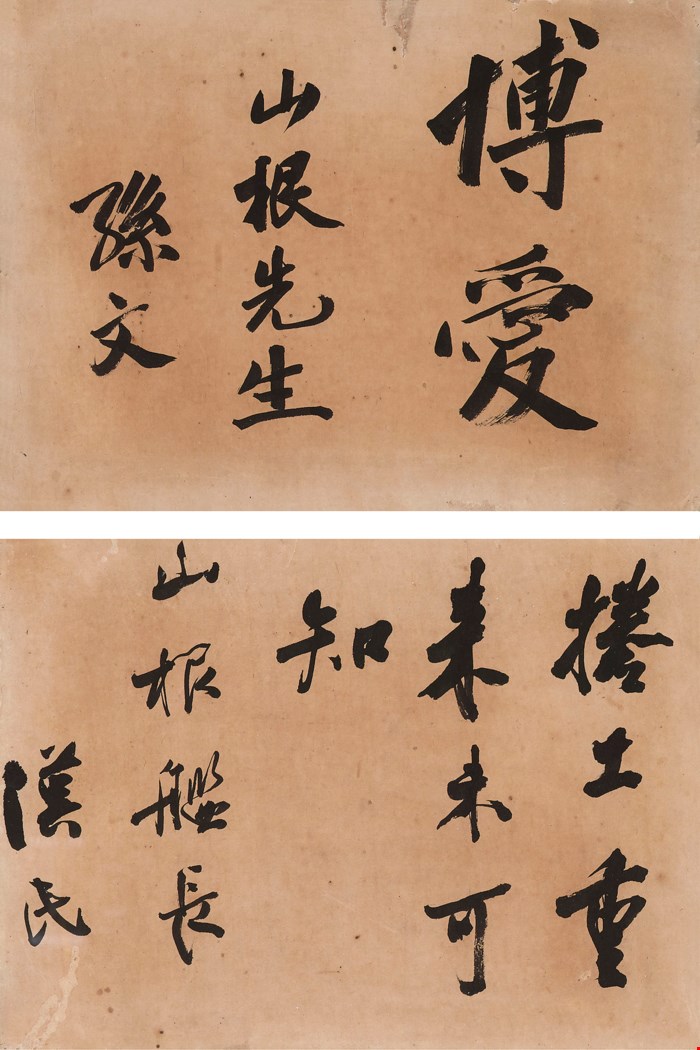 博愛
山根先生
孫文
捲土重
來未可
知
山根艦長
漢民